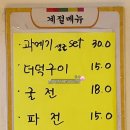 계절메뉴
과메기 set 30.0
더덕구이 15.0
굴전 18.0
파전 15.0